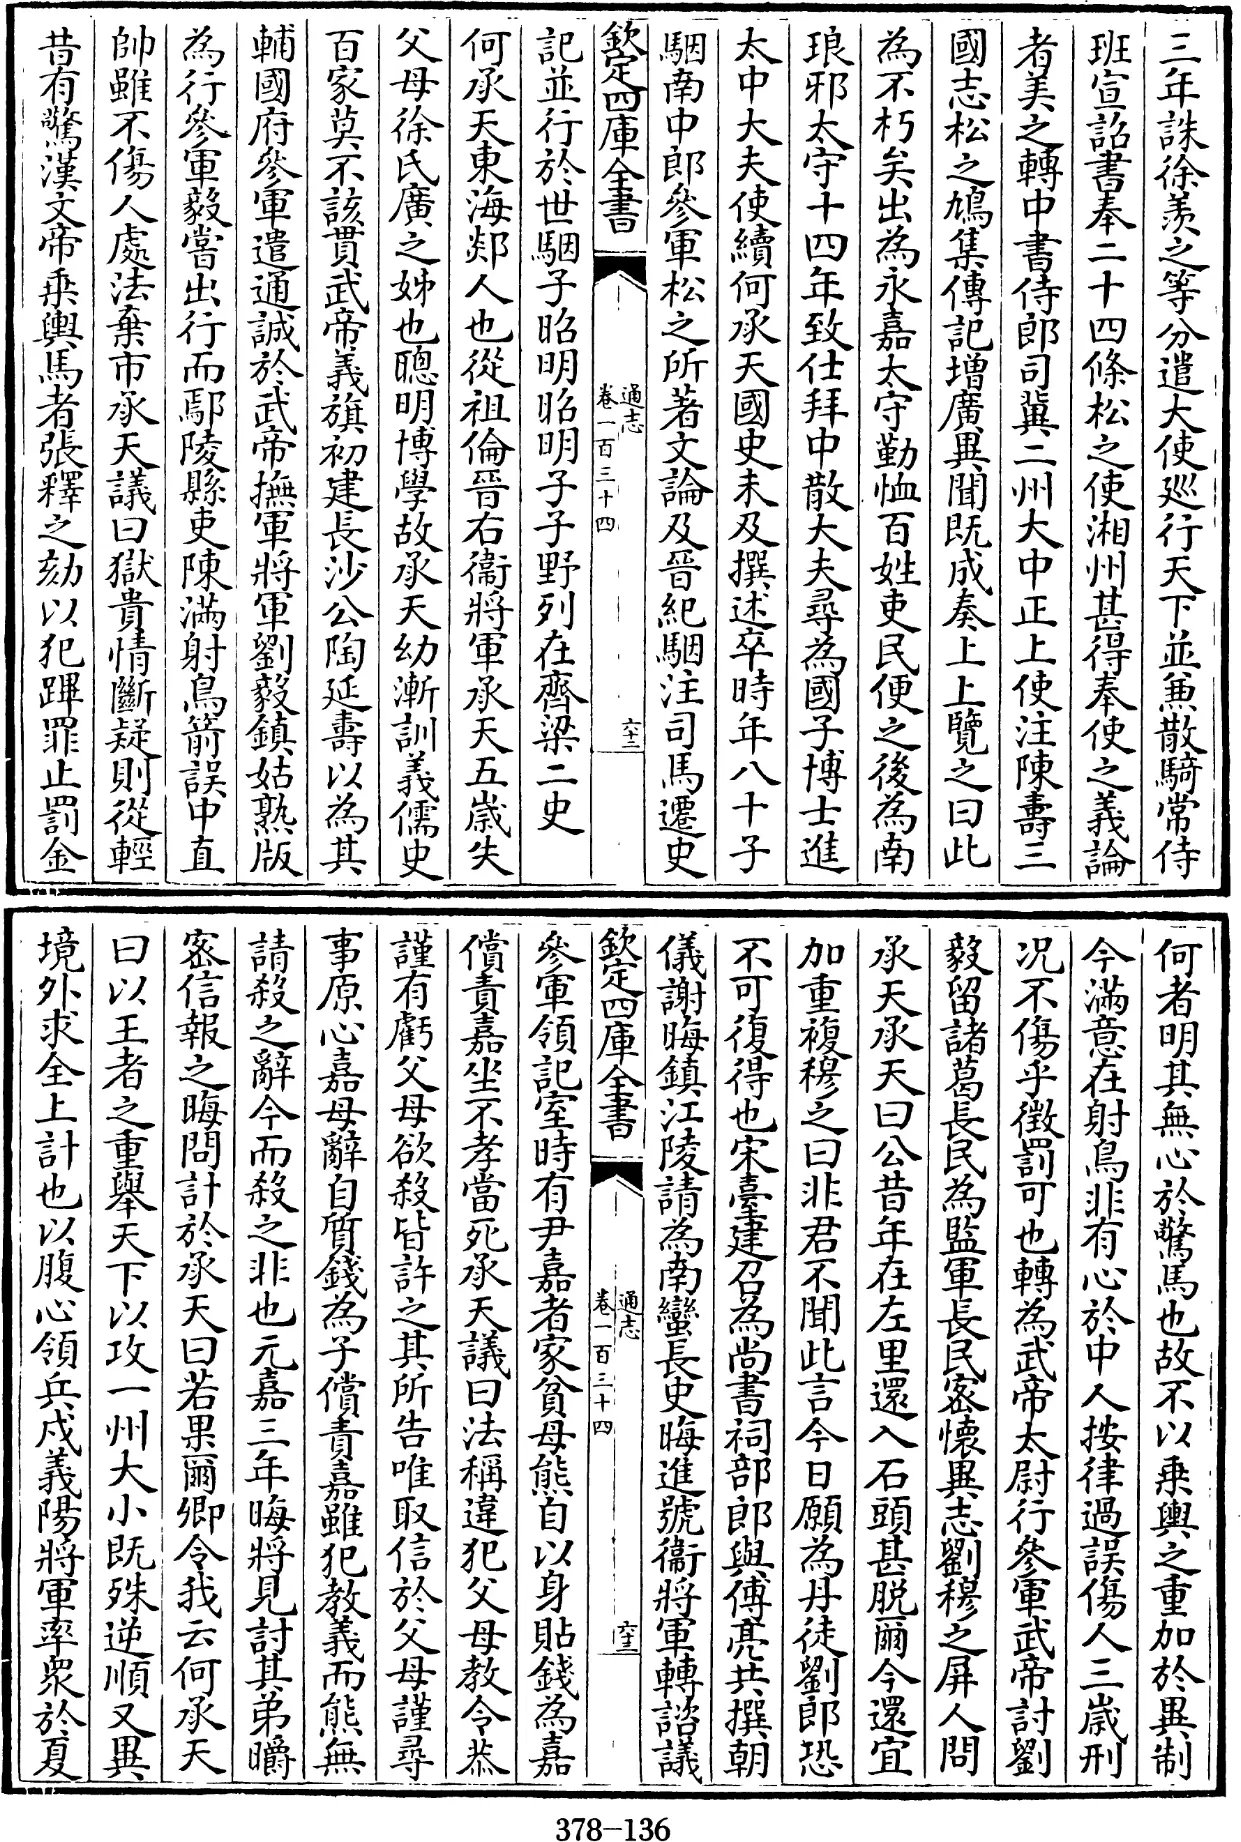 三年誅徐羨之等分遣大使廵行天下並兼散騎常侍
班宣詔書奉二十四條松之使湘州甚得奉使之義論
者美之轉中書侍郎司冀二州大中正上使注陳壽三
國志松之鳩集傳記增廣異聞既成奏上上覽之曰此
為不朽矣出為永嘉太守勤恤百姓吏民便之後為南
琅邪太守十四年致仕拜中散大夫尋為國子博士進
太中大夫使續何承天國史未及撰述卒時年八十子
駰南中郎參軍松之所著文論及晉紀駰注司馬遷史
欽定四庫全書
通志
卷一百三十四
六十二
記並行於世駰子昭明昭明子子野列在齊梁二史
何承天東海郯人也從祖倫晉右衞將軍承天五歲失
父母徐氏廣之姊也聰明博學故承天幼漸訓義儒史
百家莫不該貫武帝義旗初建長沙公陶延壽以為其
輔國府參軍遣通誠於武帝撫軍將軍劉毅鎮姑熟版
為行參軍毅嘗出行而鄢陵縣吏陳滿射鳥箭誤中直
帥雖不傷人處法棄市承天議曰獄貴情斷疑則從輕
昔有驚漢文帝乘輿馬者張釋之劾以犯蹕罪止罰金
何者明其無心於驚馬也故不以乘輿之重加於異制
今滿意在射鳥非有心於中人按律過誤傷人三歲刑
况不傷乎徵罰可也轉為武帝太尉行參軍武帝討劉
毅留諸葛長民為監軍長民密懷異志劉穆之屏人問
承天承天曰公昔年在左里還入石頭甚脱爾今還宜
加重複穆之曰非君不聞此言今日願為丹徒劉郎恐
不可復得也宋臺建召為尚書祠部郎與傅亮共撰朝
儀謝晦鎮江陵請為南蠻長史晦進號衞將軍轉諮議
欽定四庫全書
通志
卷一百三十四
六十三
參軍領記室時有尹嘉者家貧母熊自以身貼錢為嘉
償責嘉坐不孝當死承天議曰法稱違犯父母教令恭
謹有虧父母欲殺皆許之其所告唯取信於父母謹尋
事原心嘉母辭自質錢為子償責嘉雖犯教義而熊無
請殺之辭今而殺之非也元嘉三年晦將見討其弟㬭
密信報之晦問計於承天曰若果爾卿令我云何承天
曰以王者之重舉天下以攻一州大小既殊逆順又異
境外求全上計也以腹心領兵戍義陽將軍率衆於夏
378-136